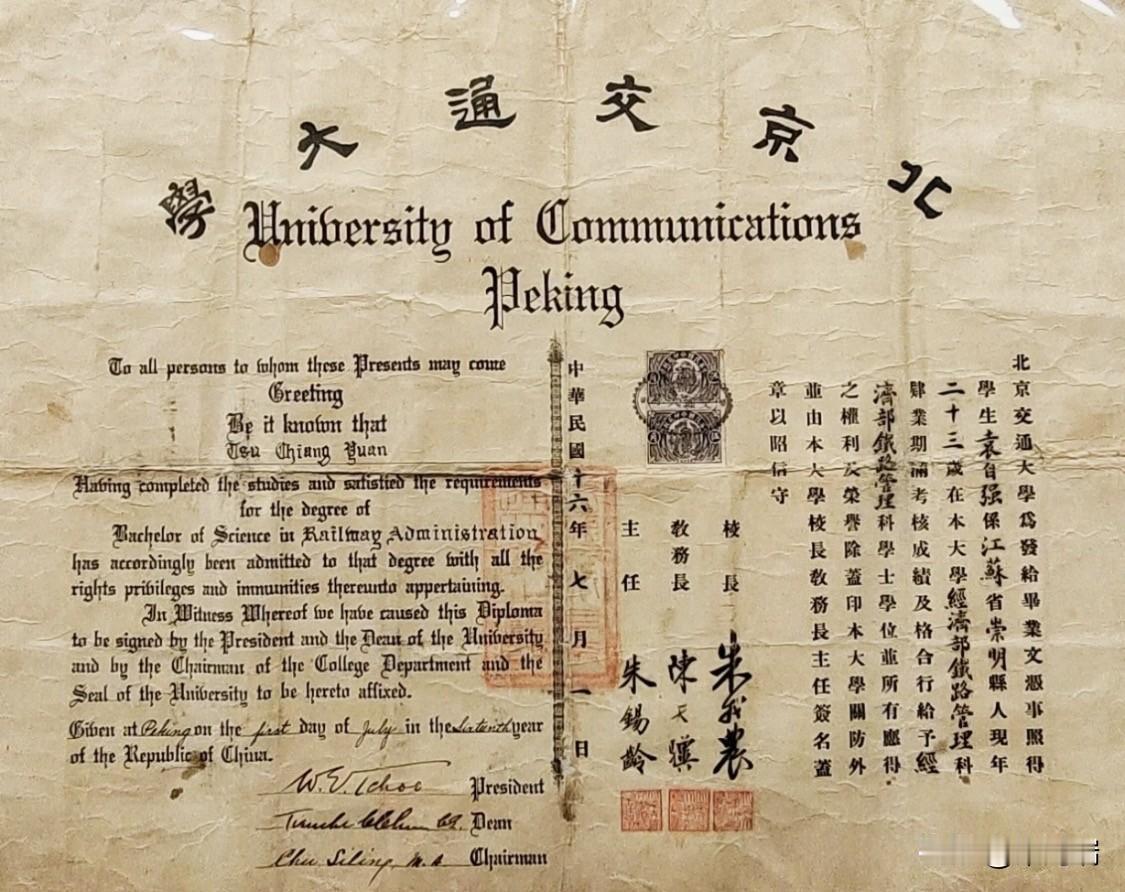 北京交通大學
University of Communications
Peking
To all persons to whom these Presents may come
Greeting
Be it known that
Tsu Chiang Yuan
Having completed the studies and satisfied the requirements
for the degree of
Bachelor of Science in Railway Administration
has accordingly been admitted to that degree with all the
rights privileges and immunities thereunto appertaining.
In Witness Whereof we have caused this Diploma
to be signed by the President and the Dean of the University
and by the Chairman of the College Department and the
Seal of the University to be hereto affixed.
Given at Peking on the first day of July in the Sixteenth year
of the Republic of China.
President
Dean
Chu Siling M.A. Chairman
北京交通大學爲發給畢業文憑事照得
學生袁自强係江蘇省崇明縣人現年
二十三歲在本大學經濟部鐵路管理科
肄業期滿考核成績及格合行給予經
濟部鐵路管理科學士學位並所有應得
之權利及榮譽除蓋印本大學關防外
並由本大學校長敎務長主任簽名蓋
章以昭信守
校長 朱我農
敎務長 陳天驥
主任 朱錫齡
中華民國十六年七月一日